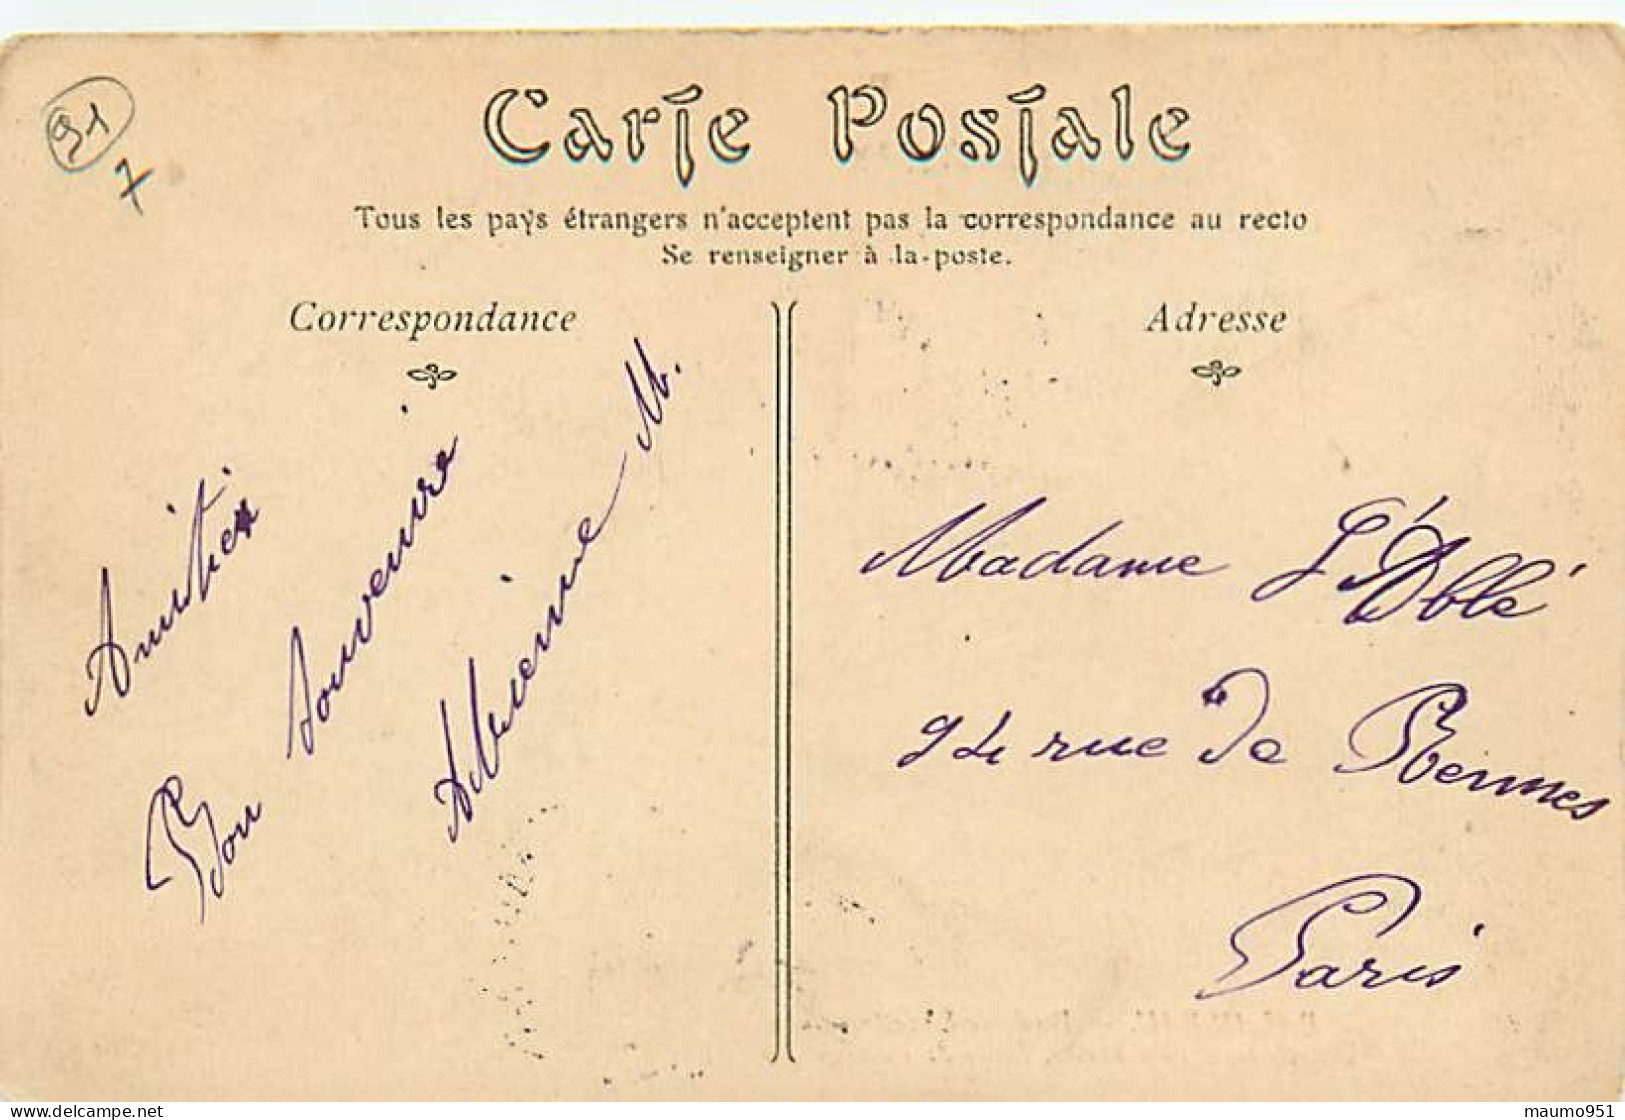 91
7
Carte Postale
Tous les pays étrangers n'acceptent pas la correspondance au recto
Se renseigner à la poste.
Correspondance
Adresse
Amitiés
Bon Souvenir
M.
Madame
94 rue de Rennes
Paris
https://www.delcampe.net
maumo951